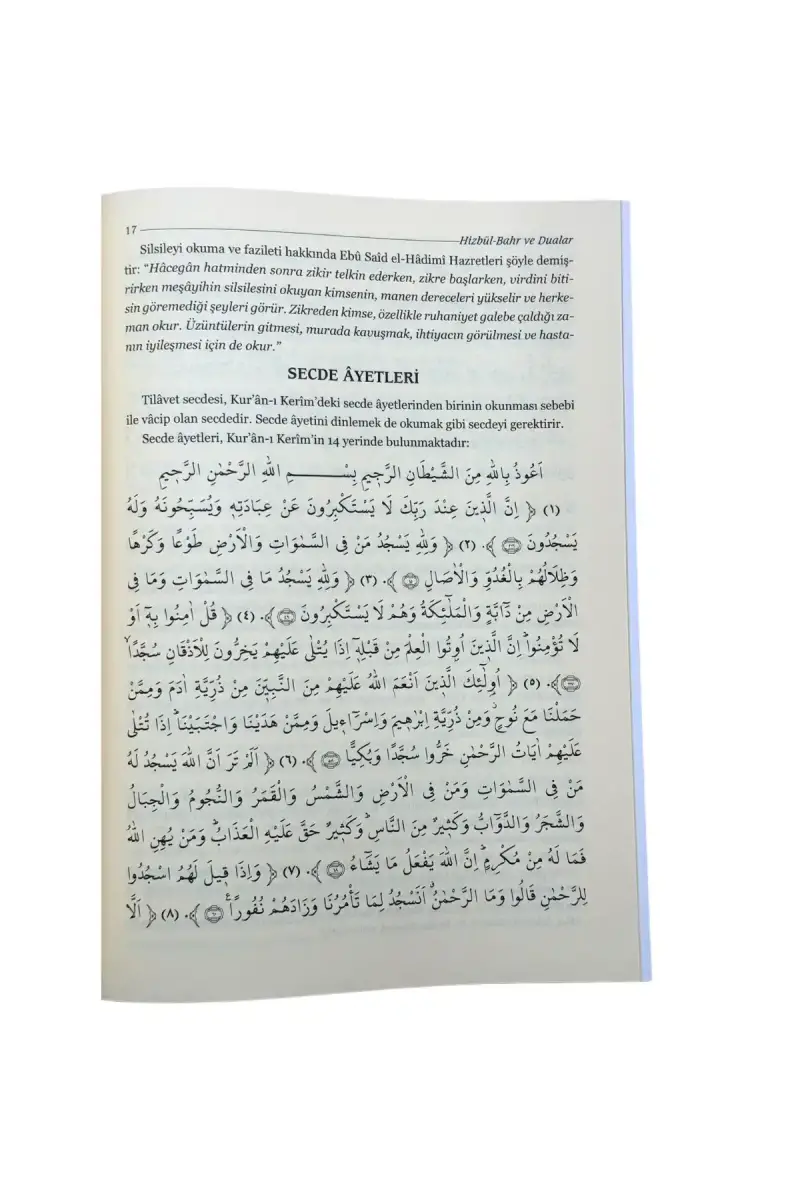 17
Hizbül-Bahr ve Dualar
Silsileyi okuma ve fazileti hakkında Ebû Saîd el-Hâdimî Hazretleri şöyle demiş-
tir: “Hâcegân hatminden sonra zikir telkin ederken, zikre başlarken, virdini biti-
rirken meşâyihin silsilesini okuyan kimsenin, manen dereceleri yükselir ve herke-
sin göremediği şeyleri görür. Zikreden kimse, özellikle ruhaniyet galebe çaldığı za-
man okur. Üzüntülerin gitmesi, murada kavuşmak, ihtiyacın görülmesi ve hasta-
nın iyileşmesi için de okur.”
SECDE ÂYETLERİ
Tilâvet secdesi, Kur’ân-ı Kerîm’deki secde âyetlerinden birinin okunması sebebi
ile vâcip olan secdedir. Secde âyetini dinlemek de okumak gibi secdeyi gerektirir.
Secde âyetleri, Kur’ân-ı Kerîm’in 14 yerinde bulunmaktadır:
اَعُوذُ بِاللّٰهِ مِنَ الشَّيْطَانِ الرَّج۪يمِ بِسْــــــــمِ اللّٰهِ الرَّحْمٰنِ الرَّح۪يمِ
(١) ﴿ اِنَّ الَّذ۪ينَ عِنْدَ رَبِّكَ لَا يَسْتَكْبِرُونَ عَنْ عِبَادَتِه۪ وَيُسَبِّحُونَهُ وَلَهُ
يَسْجُدُونَ ﴾. (٢) ﴿ وَلِلّٰهِ يَسْجُدُ مَنْ فِي السَّمٰوَاتِ وَالْاَرْضِ طَوْعًا وَكَرْهًا
وَظِلَالُهُمْ بِالْغُدُوِّ وَالْاٰصَالِ ﴾. (٣) ﴿ وَلِلّٰهِ يَسْجُدُ مَا فِي السَّمٰوَاتِ وَمَا فِي
الْاَرْضِ مِنْ دَٓابَّةٍ وَالْمَلٰٓئِكَةُ وَهُمْ لَا يَسْتَكْبِرُونَ ﴾. (٤) ﴿ قُلْ اٰمِنُوا بِه۪ٓ اَوْ
لَا تُؤْمِنُواۜ اِنَّ الَّذ۪ينَ اُو۫تُوا الْعِلْمَ مِنْ قَبْلِه۪ٓ اِذَا يُتْلٰى عَلَيْهِمْ يَخِرُّونَ لِلْاَذْقَانِ سُجَّدًاۙ
﴾. (٥) ﴿ اُو۬لٰٓئِكَ الَّذ۪ينَ اَنْعَمَ اللّٰهُ عَلَيْهِمْ مِنَ النَّبِيّ۪نَ مِنْ ذُرِّيَّةِ اٰدَمَ وَمِمَّنْ
حَمَلْنَا مَعَ نُوحٍۘ وَمِنْ ذُرِّيَّةِ اِبْرٰه۪يمَ وَاِسْرَٓاء۪يلَ وَمِمَّنْ هَدَيْنَا وَاجْتَبَيْنَاۜ اِذَا تُتْلٰى
عَلَيْهِمْ اٰيَاتُ الرَّحْمٰنِ خَرُّوا سُجَّدًا وَبُكِيًّا ﴾. (٦) ﴿ اَلَمْ تَرَ اَنَّ اللّٰهَ يَسْجُدُ لَهُ
مَنْ فِي السَّمٰوَاتِ وَمَنْ فِي الْاَرْضِ وَالشَّمْسُ وَالْقَمَرُ وَالنُّجُومُ وَالْجِبَالُ
وَالشَّجَرُ وَالدَّوَٓابُّ وَكَث۪يرٌ مِنَ النَّاسِۜ وَكَث۪يرٌ حَقَّ عَلَيْهِ الْعَذَابُۜ وَمَنْ يُهِنِ اللّٰهُ
فَمَا لَهُ مِنْ مُكْرِمٍۜ اِنَّ اللّٰهَ يَفْعَلُ مَا يَشَٓاءُ ﴾. (٧) ﴿ وَاِذَا ق۪يلَ لَهُمُ اسْجُدُوا
لِلرَّحْمٰنِ قَالُوا وَمَا الرَّحْمٰنُۗ اَنَسْجُدُ لِمَا تَأْمُرُنَا وَزَادَهُمْ نُفُورًا۟ ﴾. (٨) ﴿ اَلَّا